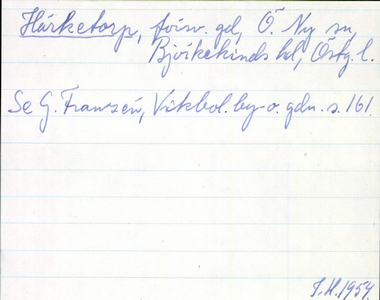 Hårketorp, försv. gd, Ö. Ny sn,
Björkekinds hd, Östg. l.
Se G. Franzén, Vikbol. by- o. gdn. s. 161.
S.H. 1954.